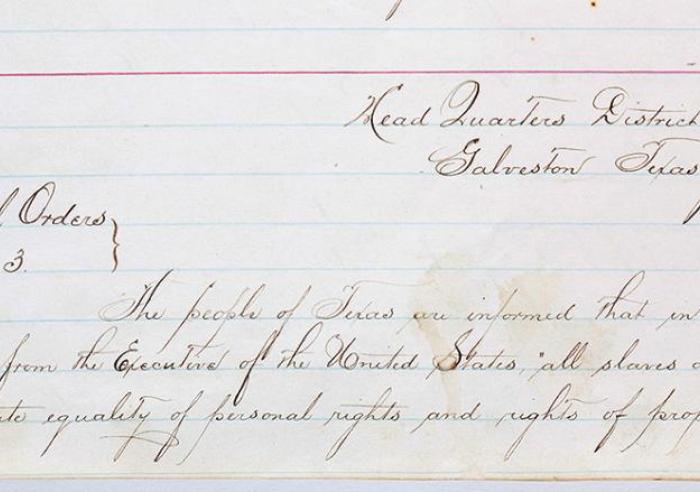 Head Quarters District
Galveston Texas
l Orders
3.
The people of Texas are informed that in
from the Executive of the United States, "all slaves a
ute equality of personal rights and rights of prop